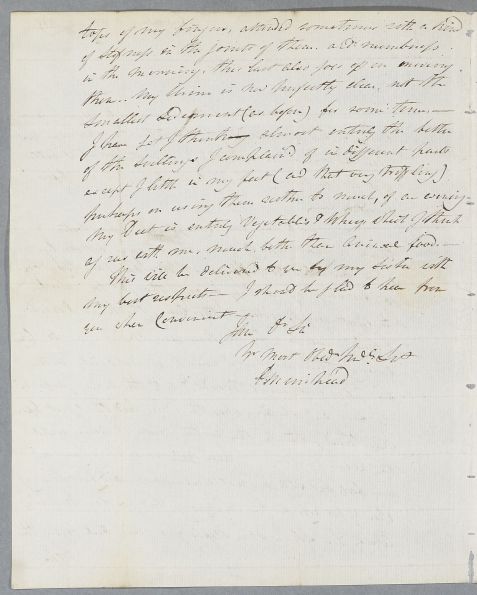 tops of my fingers, attended sometimes with a kind
of stifness in the joints of them. and numbness
in the morning. this last also goes off in moving
them.. My Urine is now perfectly clear, not the
smallest sediment (as before) for some time,—
I have got I think almost entirely the better
of the swellings I complain'd of in different parts
except a little in my feet (and that very triffling)
perhaps on using them rather to much, of an evening.
My Diet is entirely Vegetables & Whey which I think
agrees with me, much better than Animal food.—
This will be delivered to you by my Sister with
my best respects— I should be glad to hear from
you when Convenient
I am Dr Sir
Yr Most Obedt Sert
Muirhead